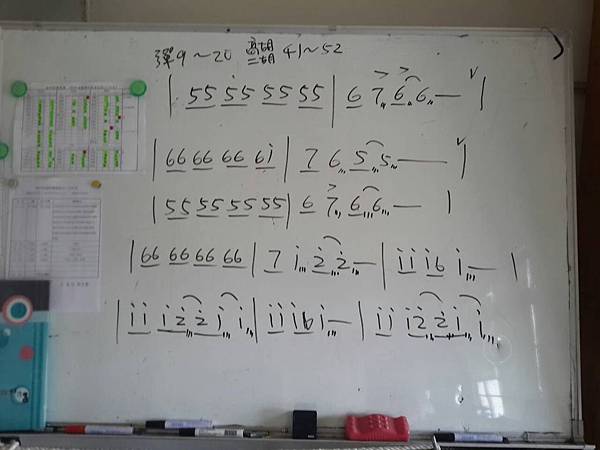 彈9～20 高胡二胡 41～52
| 55 55 55 55 | 6 7 6 6 — |
| 66 66 66 6i | 7 6 5 5 — |
| 55 55 55 55 | 6 7 6 6 — |
| 66 66 66 66 | 7 i 2 2 — | i i i 6 i — |
| i i i 2 2 i i | i i i 6 i — | i i i 2 2 i i